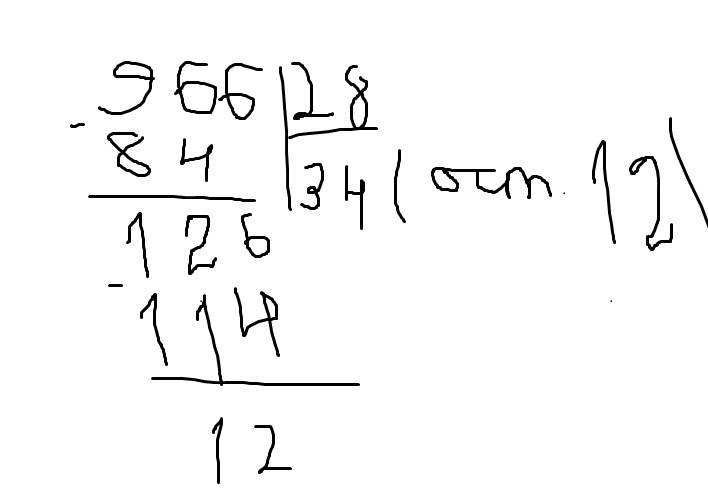 966 28
- 84 34 (ост. 12)
126
- 114
12